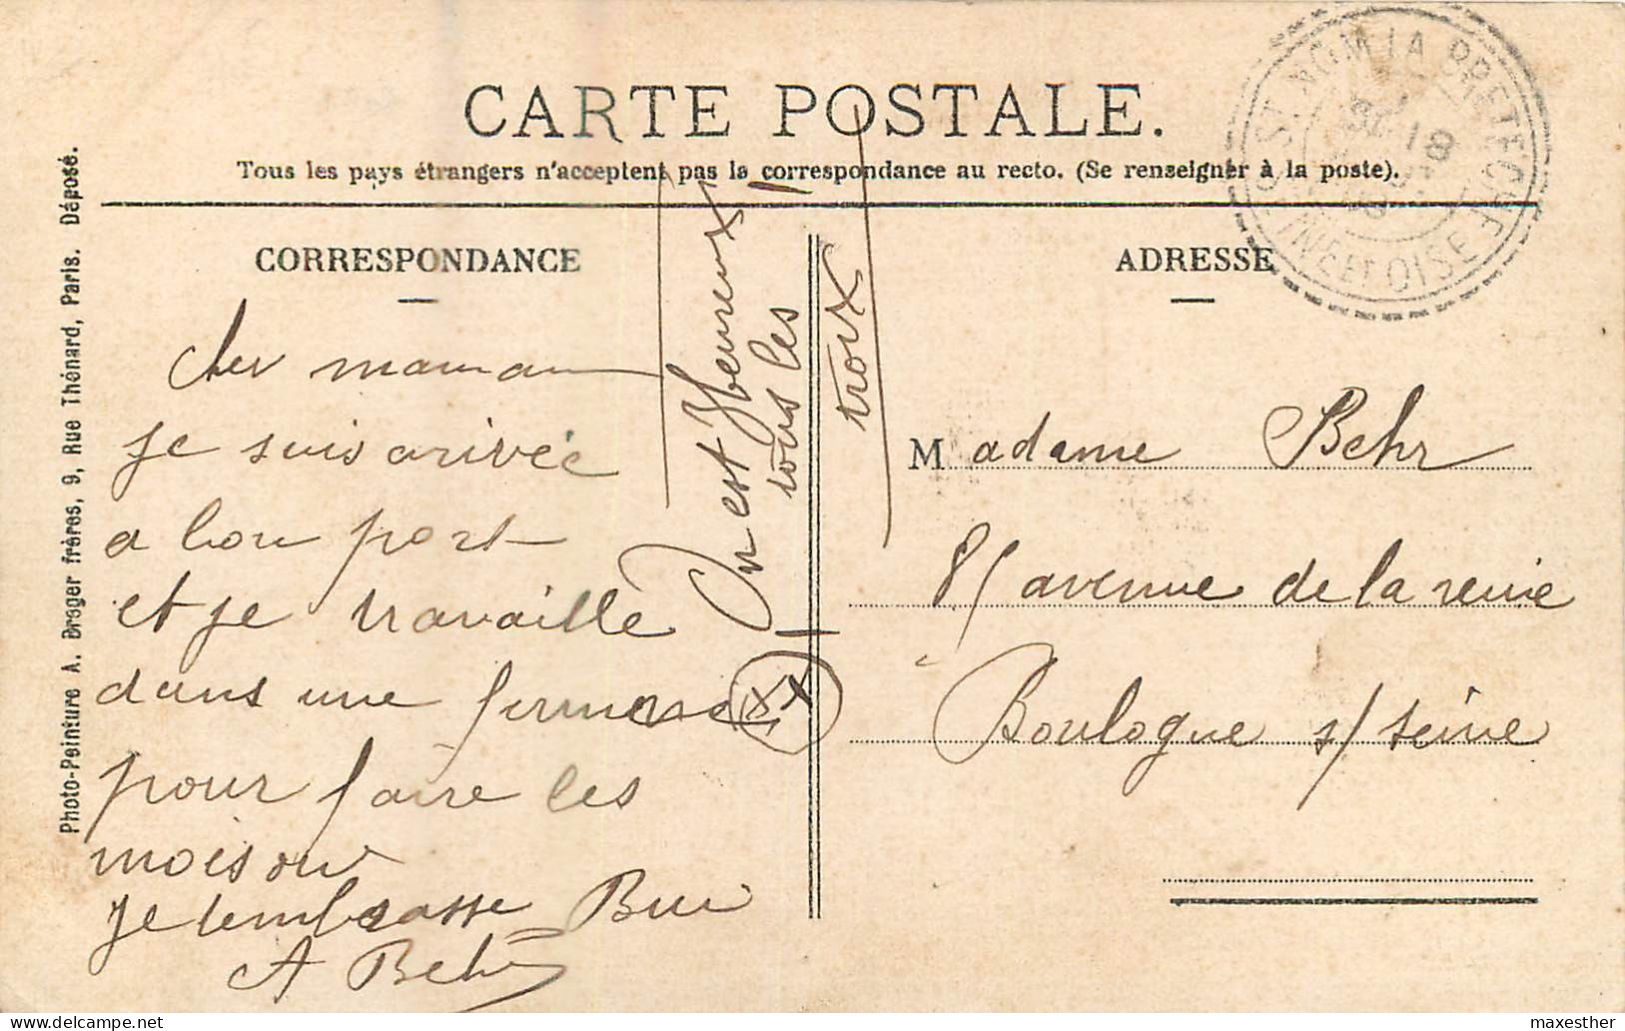 CARTE POSTALE.
Tous les pays étrangers n'acceptent pas la correspondance au recto. (Se renseigner à la poste).
CORRESPONDANCE
ADRESSE
Photo-Peinture A. Breger frères, 9, Rue Thénard, Paris. Déposé.
Cher maman
je suis arivée
a bon port
et je travaille
dans une ferme
pour faire les
moisons
Je tembrasse Bien
A Behr
On est Heureux
tous les
troix
Madame Behr
85 avenue de la reine
Boulogne s/ seine
ST NOM LA BRETECHE
SEINE ET OISE
18
maxesther